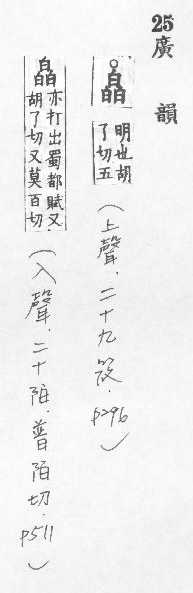 25廣韻
○皛
明也胡
了切五
(上聲.二十九筱.p296)
皛
亦打出蜀都賦又
胡了切又莫百切
(入聲.二十陌.普陌切.p511)